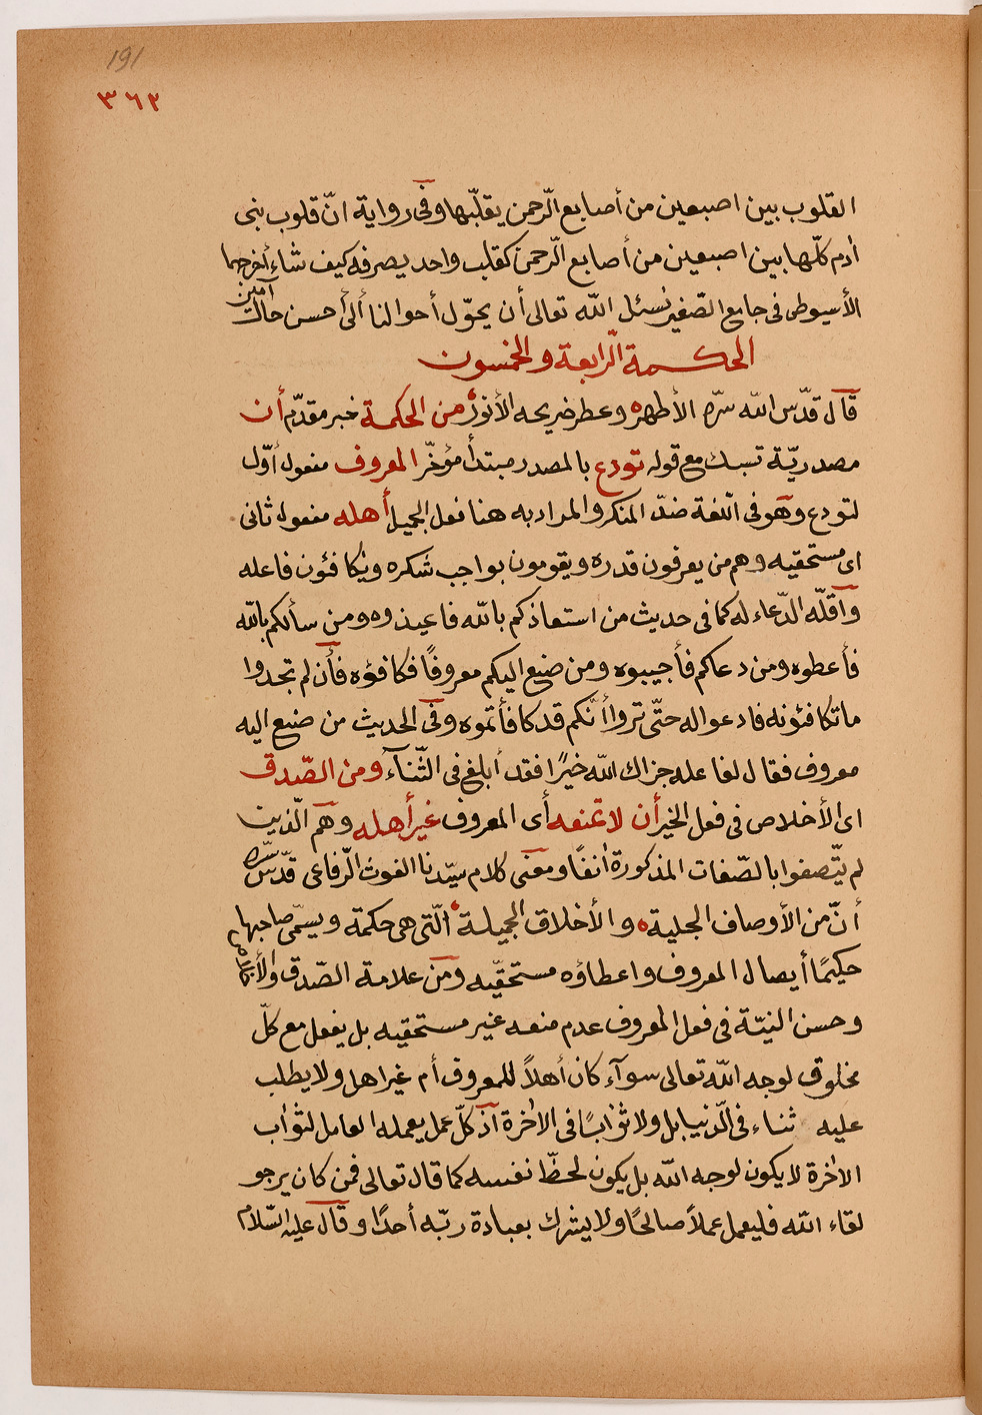 191
٣٦٢
القلوب بين اصبعين من أصابع الرّحمن يقلّبها وفى رواية انّ قلوب بنى
اٰدم كلّها بين اصبعين من أصابع الرّحمن كقلب واحد يصرفه كيف شاء أخرجهما
الأسيوطى فى جامع الصّغير نسئل اللّه تعالى أن يحوّل أحوالنا ألى أحسن حال آمين
الحكمة الرّابعة والخمسون
قال قدّس اللّه سرّه الأطهر وعطر ضريحه الأنور من الحكمة خبر مقدّم أن
مصدريّة تسبك مع قوله تودع بالمصدر مبتدأ مؤخّر المعروف مفعول أوّل
لتودع وهو فى اللّغة ضدّ المنكر والمراد به هنا فعل الجميل أهله مفعول ثانى
اى مستحقيه وهم من يعرفون قدره ويقومون بواجب شكره ويكافئون فاعله
واقلّه الدّعاء له كما فى حديث من استعاذكم باللّه فاعيذوه ومن سألكم باللّه
فأعطوه ومن دعاكم فأجيبوه ومن صنع اليكم معروفًا فكافؤه فأن لم تجدوا
ما تكافئونه فادعوا له حتّى تروا أنّكم قد كافأتموه وفى الحديث من صنع اليه
معروف فقال لفاعله جزاك اللّه خيرًا فقد أبلغ فى الثّنآء ومن الصّدق
اى الأخلاص فى فعل الخير أن لا تمنعه أى المعروف غير أهله وهم الّذين
لم يتّصفوا بالصّفات المذكورة اٰنفًا ومعنى كلام سيّدنا الغوث الرّفاعى قدّس سرّه
أنّ من الأوصاف الجلية والأخلاق الجميلة الّتى هى حكمة ويسمّى صاحبها
حكيمًا أيصال المعروف واعطاؤه مستحقّيه ومن علامة الصّدق والأخلاص
وحسن النيّة فى فعل المعروف عدم منعه غير مستحقيه بل يفعل مع كلّ
مخلوق لوجه اللّه تعالى سوآء كان أهلاً للمعروف أم غير اهل ولا يطلب
عليه ثناء فى الدّنيا بل ولا ثوٰابًا فى الاٰخرة اذ كلّ عمل يعمله العامل لثوٰاب
الاٰخرة لا يكون لوجه اللّه بل يكون لحظّ نفسه كما قال تعالى فمن كان يرجو
لقاء اللّه فليعمل عملاً صالحًا ولا يشرك بعبادة ربّه أحدًا وقال عليه السّلام